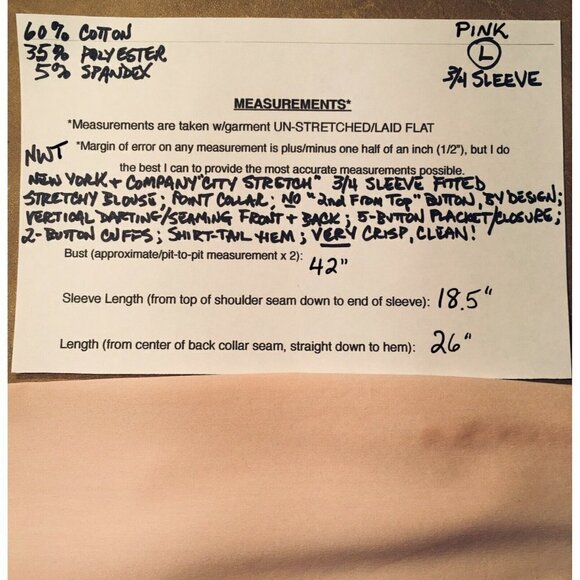 60% COTTON
35% POLYESTER
5% SPANDEX
PINK
L
3/4 SLEEVE
MEASUREMENTS*
*Measurements are taken w/garment UN-STRETCHED/LAID FLAT
*Margin of error on any measurement is plus/minus one half of an inch (1/2"), but I do
the best I can to provide the most accurate measurements possible.
NWT
NEW YORK + COMPANY "CITY STRETCH" 3/4 SLEEVE FITTED
STRETCHY BLOUSE; POINT COLLAR; NO "2nd From Top" BUTTON, BY DESIGN;
VERTICAL DARTING/SEAMING FRONT + BACK; 5-BUTTON PLACKET/CLOSURE;
2-BUTTON CUFFS; SHIRT-TAIL HEM; VERY CRISP, CLEAN!
Bust (approximate/pit-to-pit measurement x 2): 42"
Sleeve Length (from top of shoulder seam down to end of sleeve): 18.5"
Length (from center of back collar seam, straight down to hem): 26"